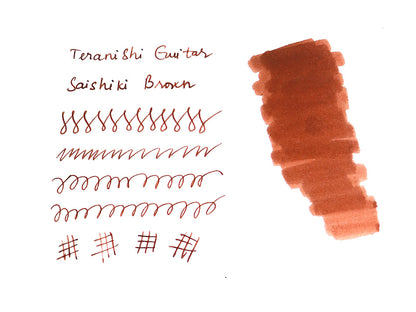 Teranishi Guitar
Saishiki Brown